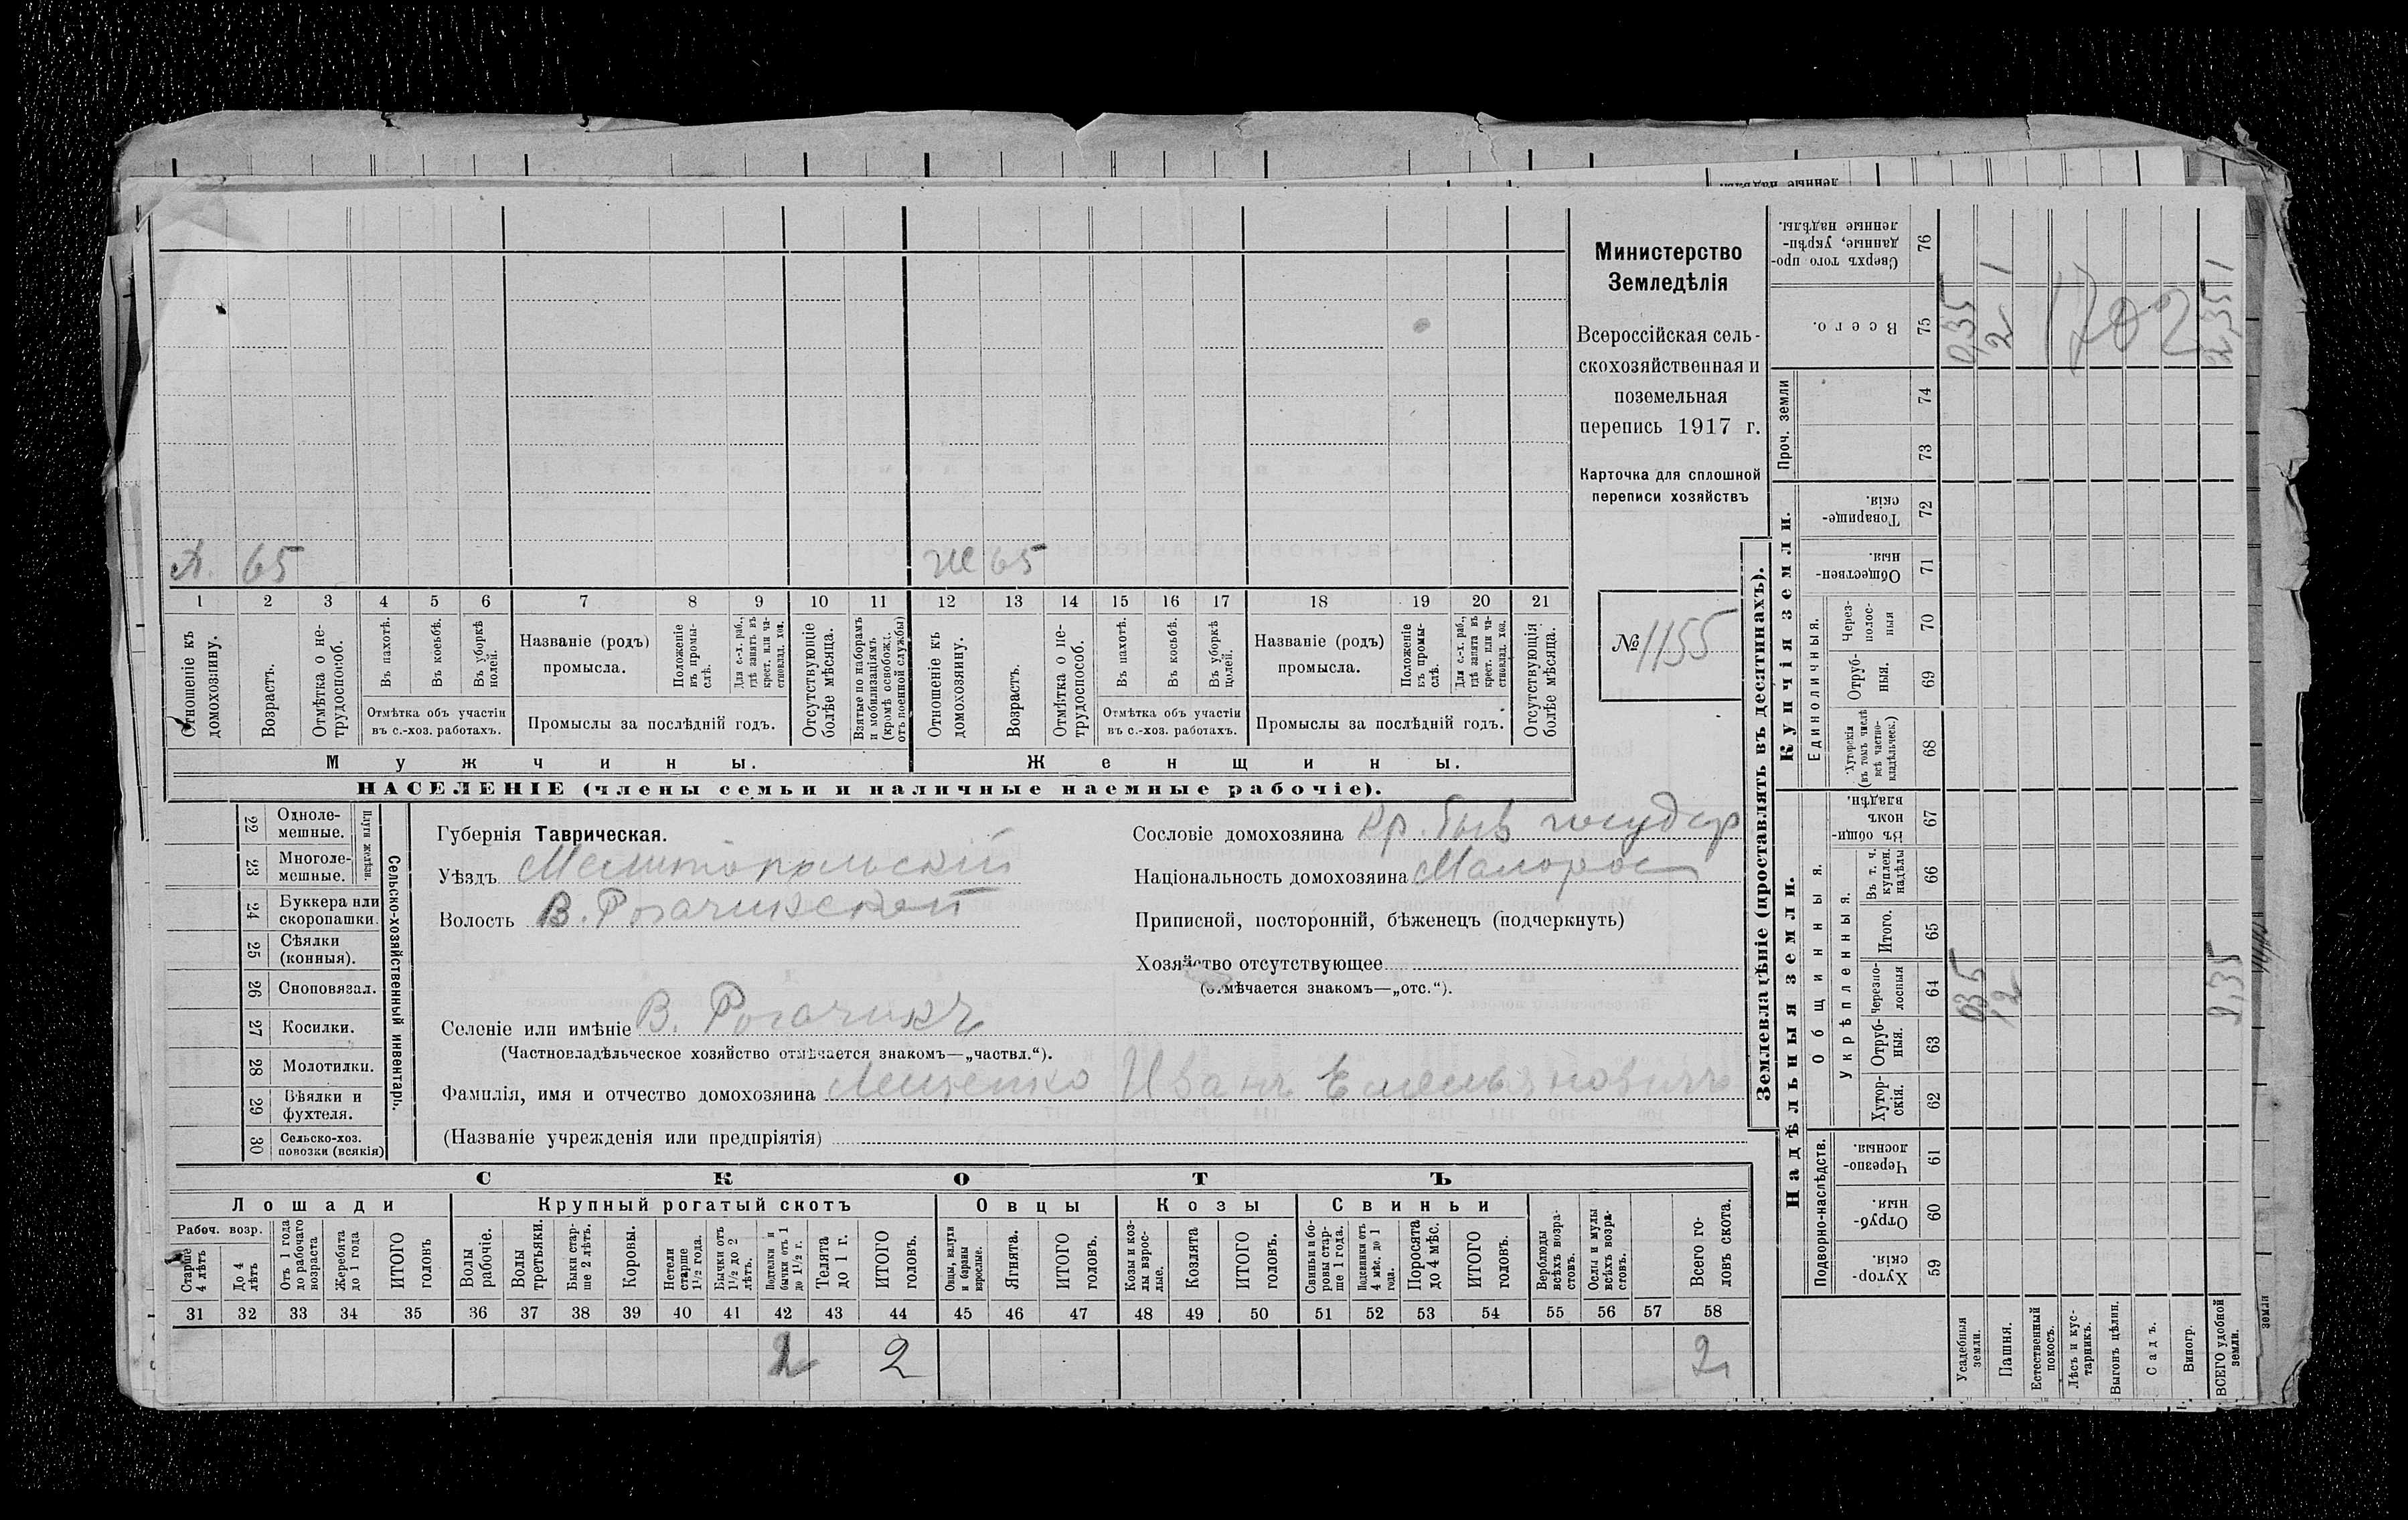 Министерство
Земледѣлія
Всероссійская сель-
скохозяйственная и
поземельная
перепись 1917 г.
Карточка для сплошной
переписи хозяйствъ
№ 1155
65
Ж 65
1 2 3 4 5 6 7 8 9 10 11 12 13 14 15 16 17 18 19 20 21
Отношеніе къ домохозяину.
Возрастъ.
Отмѣтка о не-трудоспособ.
Въ пахотѣ.
Въ косьбѣ.
Въ уборкѣ полей.
Отмѣтка объ участіи
въ с.-хоз. работахъ.
Названіе (родъ)
промысла.
Положеніе въ промы-слѣ.
Для с.-х. раб., гдѣ занятъ въ крест. или ча-стновлад. хоз.
Промыслы за послѣдній годъ.
Отсутствующіе болѣе мѣсяца.
Взятые по наборамъ и мобилизаціямъ (кромѣ освобожд. отъ военной службы)
Отношеніе къ домохозяину.
Возрастъ.
Отмѣтка о не-трудоспособ.
Въ пахотѣ.
Въ косьбѣ.
Въ уборкѣ полей.
Отмѣтка объ участіи
въ с.-хоз. работахъ.
Названіе (родъ)
промысла.
Положеніе въ промы-слѣ.
Для с.-х. раб., гдѣ занятъ въ крест. или ча-стновлад. хоз.
Промыслы за послѣдній годъ.
Отсутствующія болѣе мѣсяца.
Мужчины. Женщины.
НАСЕЛЕНІЕ (члены семьи и наличные наемные рабочіе).
22 Одноле-мешные.
23 Многоле-мешные.
Плуги желѣзн.
24 Буккера или скоропашки.
25 Сѣялки (конныя).
26 Сноповязал.
27 Косилки.
28 Молотилки.
29 Вѣялки и фухтеля.
30 Сельско-хоз. повозки (всякія)
Сельско-хозяйственный инвентарь.
Губернія Таврическая.
Уѣздъ Мелитопольскій
Волость В. Рогачикской
Сословіе домохозяина Кр. быв государ
Національность домохозяина Малорос
Приписной, посторонній, бѣженецъ (подчеркнуть)
Хозяйство отсутствующее
(отмѣчается знакомъ—„отс.“).
Селеніе или имѣніе В. Рогачикъ
(Частновладѣльческое хозяйство отмѣчается знакомъ—„частвл.“).
Фамилія, имя и отчество домохозяина Лещенко Иванъ Емельяновичъ
(Названіе учрежденія или предпріятія)
СКОТЪ
Лошади Крупный рогатый скотъ Овцы Козы Свиньи
Рабоч. возр.
Старше 4 лѣтъ
До 4 лѣтъ
Отъ 1 года до рабочаго возраста
Жеребята до 1 года
ИТОГО головъ
Волы рабочіе.
Волы третьяки.
Быки стар-ше 2 лѣтъ.
Коровы.
Нетели старше 1½ года.
Бычки отъ 1½ до 2 лѣтъ.
Подтелки и бычки отъ 1 до 1½ г.
Телята до 1 г.
ИТОГО головъ.
Овцы, валухи и бараны взрослые.
Ягнята.
ИТОГО головъ.
Козы и коз-лы взрос-лые.
Козлята
ИТОГО головъ.
Свиньи и бо-ровы стар-ше 1 года.
Подсвинки отъ 4 мѣс. до 1 года.
Поросята до 4 мѣс.
ИТОГО головъ.
Верблюды всѣхъ возра-стовъ.
Ослы и мулы всѣхъ возра-стовъ.
Всего го-ловъ скота.
31 32 33 34 35 36 37 38 39 40 41 42 43 44 45 46 47 48 49 50 51 52 53 54 55 56 57 58
2 2 2
Землевладѣніе (проставлять въ десятинахъ).
Надѣльныя земли. Купчія земли. Проч. земли
Подворно-наслѣдств.
Общинныя.
Укрѣпленныя.
Единоличныя.
Хутор-скія. 59
Отруб-ныя. 60
Черезпо-лосныя. 61
Хутор-скія. 62
Отруб-ныя. 63
Черезпо-лосныя 64
Итого. 65
Въ т. ч. куплен. надѣлы 66
Въ общи-номъ владѣн. 67
Хуторскія (въ томъ числѣ всѣ частно-владѣльческ.) 68
Отруб-ныя. 69
Через-полос-ныя 70
Обществен-ныя. 71
Товарище-скія. 72
73
74
Всего. 75
Сверхъ того про-данные, укрѣп-ленные надѣлы. 76
Усадебныя земли. 0,35 0,35
Пашня. 2 2 1
Естественный покосъ.
Лѣсъ и кус-тарникъ.
Выгонъ цѣлин.
Садъ.
Виногр.
ВСЕГО удобной земли. 2,35 2,35 1
1702
земли
ленные надѣлы